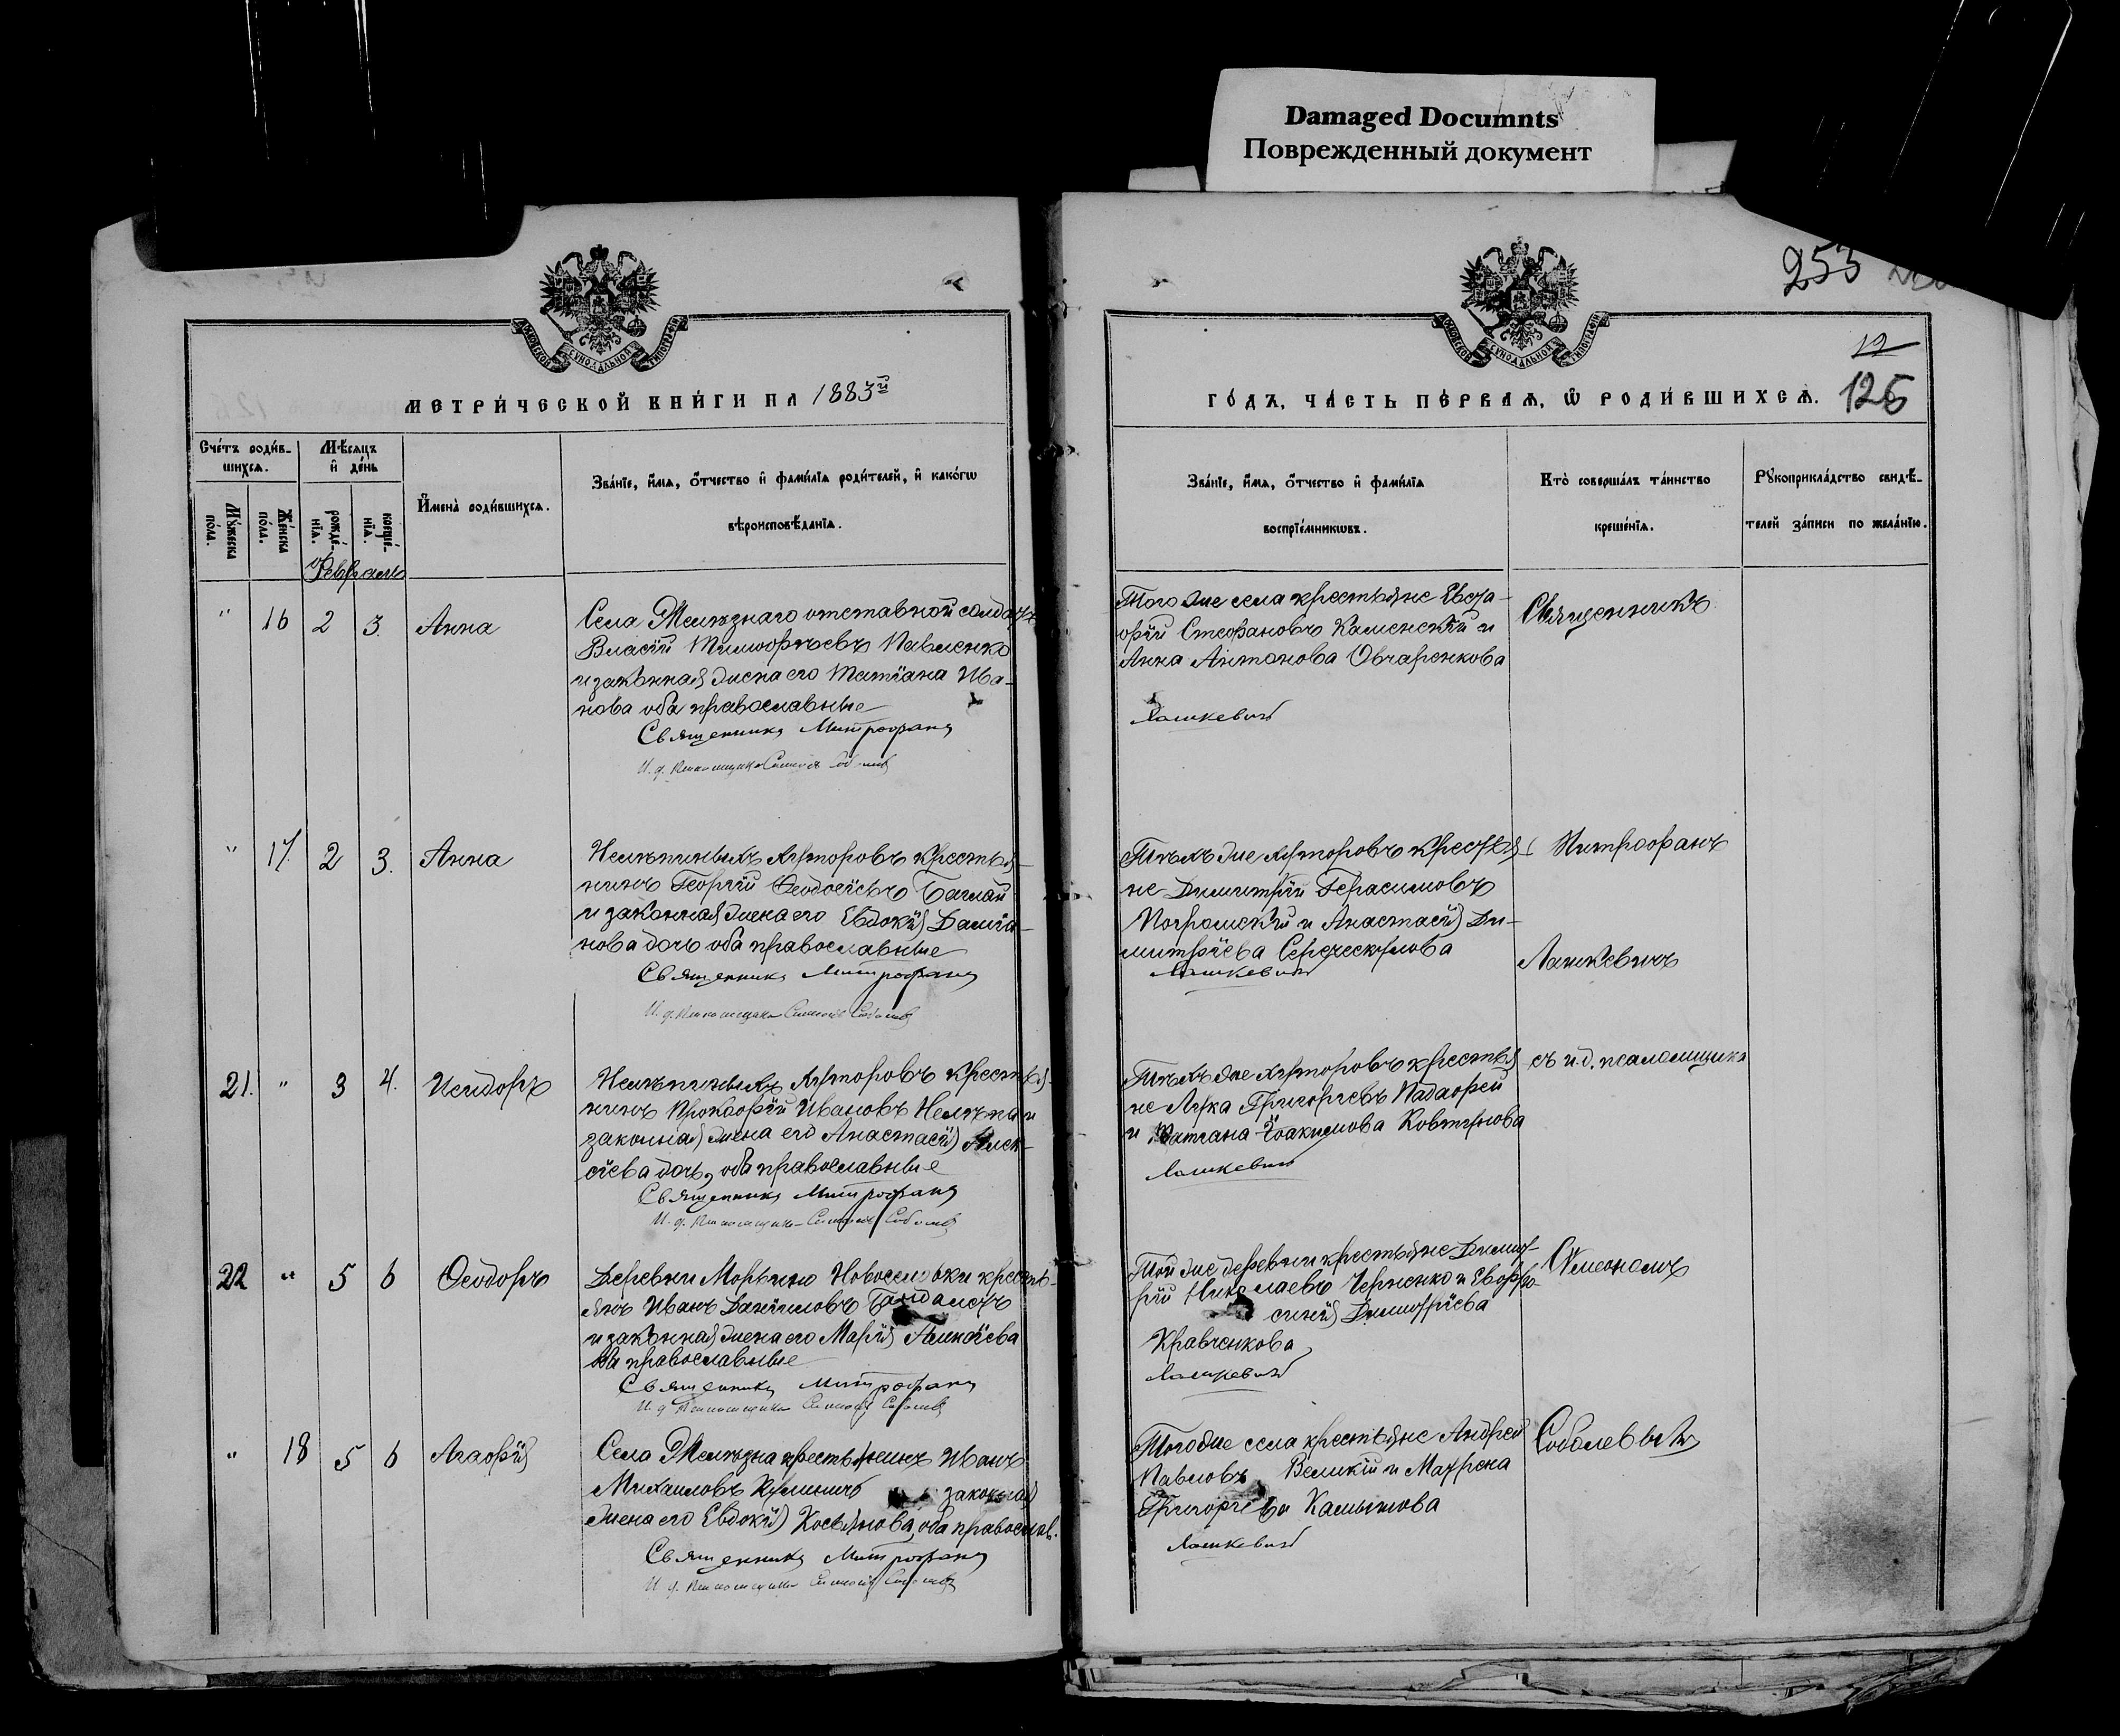 Damaged Documnts
Поврежденный документ
253
МОСКОВСКОЙ СУНОДАЛЬНОЙ ТИПОГРАФІИ
МОСКОВСКОЙ СУНОДАЛЬНОЙ ТИПОГРАФІИ
12
126
МЕТРИ́ЧЕСКОЙ КНИ́ГИ НА 1883й
ГО́ДЪ, ЧА́СТЬ ПЕ́РВАЯ, Ѡ РОДИ́ВШИХСЯ.
Сче́тъ роди́в-
шихся.
Мѣ́сяцъ
и҆ де́нь
Му́жеска по́ла.
Же́нска по́ла.
рожде́-
нїѧ.
креще́-
нїѧ.
И҆мена̀ роди́вшихся.
Зва́нїе, и҆́мя, ѻ҆́тчество и҆ фами́лїя роди́телей, и҆ како́гѡ
вѣроисповѣ́данїя.
Зва́нїе, и҆́мя, ѻ҆́тчество и҆ фами́лїя
воспрїе́мникѡвъ.
Кто̀ соверша́лъ та́инство
креще́нїя.
Рꙋкоприкла́дство свидѣ́-
телей за́писи по жела́нїю.
Февраль
" 16 2 3. Анна
Села Желѣзнаго отставной солдатъ
Власій Тимофѣевъ Павленко
и законная жена его Татіана Ива-
нова оба православные
Священникъ Митрофанъ
И. д. Псаломщика Симеонъ Соболевъ
Того же села крестьяне
Стефановъ Каменскій и
Анна Антонова Овчаренкова
Лашкевичъ
Священникъ
" 17. 2 3. Анна
хуторовъ крестья-
нинъ Георгій Феодосіевъ Баглай
и законная жена его Евдокія Даміа-
нова дочь оба православные
Священникъ Митрофанъ
И. д. Псаломщика Симеонъ Соболевъ
Тѣхъ же хуторовъ крестья-
не Димитрій Герасимовъ
и Анастасія Ди-
митріева
Лашкевичъ
Митрофанъ
Лашкевичъ
21. " 3 4. Исидоръ
хуторовъ крестья-
нинъ Прокофій Ивановъ и
законная жена его Анастасія Алек-
сіева дочь, оба православные
Священникъ Митрофанъ
И. д. Псаломщика Симеонъ Соболевъ
Тѣхъ же хуторовъ крестья
не Лука Григорьевъ
и Іоакимова Ковтунова
Лашкевичъ
съ и.д. псаломщика
22 " 5 6 Феодоръ
Деревни Морьино Новоселовки крестья-
янъ Иванъ Даніиловъ
и законная жена его Марія Алексіева
оба православные
Священникъ Митрофанъ
И. д. Псаломщика Симеонъ Соболевъ
Той же деревни крестьяне Димит-
рій Николаевъ Черненко и Евфро-
синія Димитріева
Кравченкова
Лашкевичъ
Симеономъ
" 18 5 6 Агафія
Села Желѣзна крестьянинъ Иванъ
Михаиловъ законная
жена его Евдокія Косьянова, оба православ.
Священникъ Митрофанъ
И. д. Псаломщика Симеонъ Соболевъ
Того же села крестьяне Андрей
Павловъ Великій и Матрена
Григорьева Калытова
Лашкевичъ
Соболевымъ